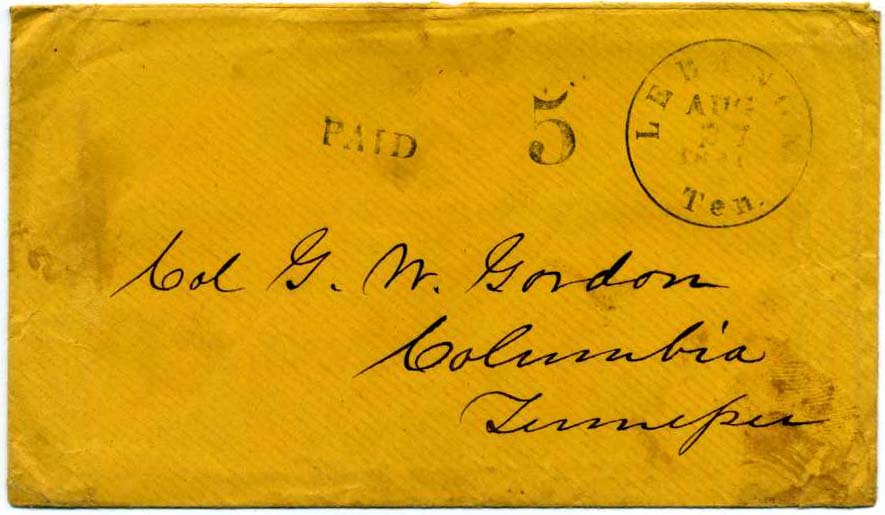 PAID 5
LEBANON
AUG
27
Ten.
Col G. W. Gordon
Columbia
Tennessee